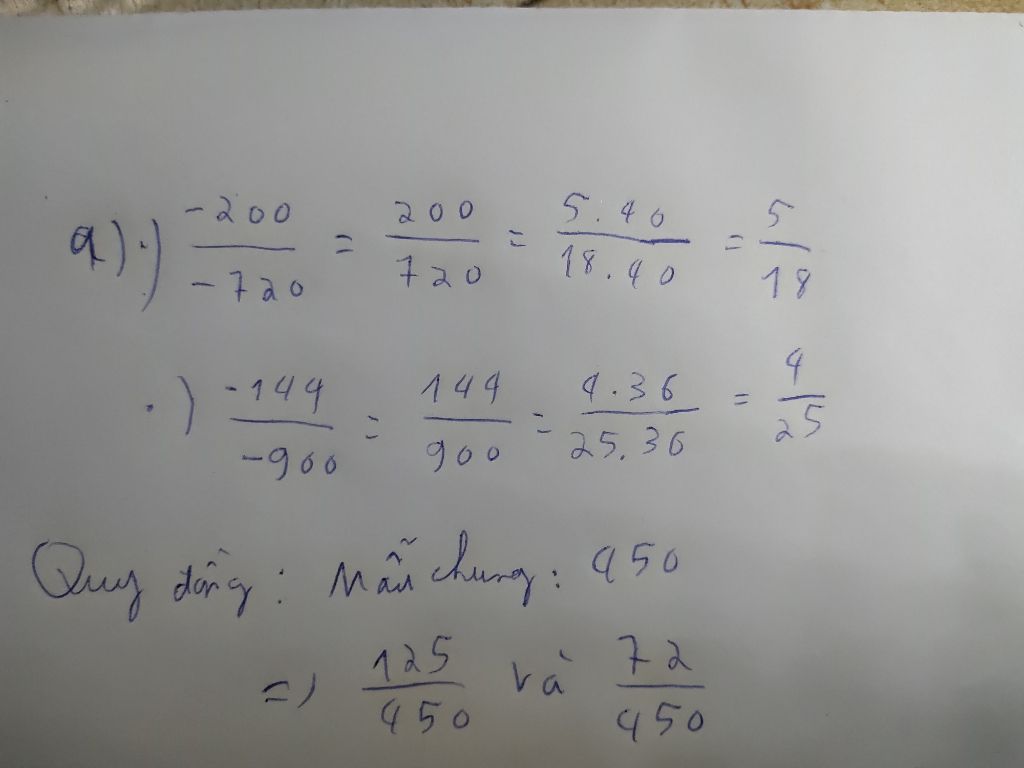 a) .) -200/-720 = 200/720 = 5.40/18.40 = 5/18
.) -144/-900 = 144/900 = 4.36/25.36 = 4/25
Quy đồng: Mẫu chung: 450
=) 125/450 và 72/450